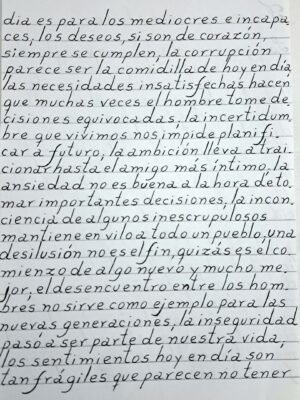 dia es para los mediocres e incapa
ces, los deseos, si son de corazón,
siempre se cumplen, la corrupción
parece ser la comidilla de hoy en día,
las necesidades insatisfechas hacen
que muchas veces el hombre tome de
cisiones equivocadas, la incertidum
bre que vivimos nos impide planifi-
car a futuro, la ambición lleva a trai-
cionar hasta el amigo más íntimo, la
ansiedad no es buena a la hora de to
mar importantes decisiones, la incon
ciencia de algunos inescrupulosos
mantiene en vilo a todo un pueblo, una
desilusión no es el fin, quizás es el co
mienzo de algo nuevo y mucho me
jor, el desencuentro entre los hom
bres no sirve como ejemplo para las
nuevas generaciones, la inseguridad
pasó a ser parte de nuestra vida,
los sentimientos hoy en día son
tan frágiles que parecen no tener